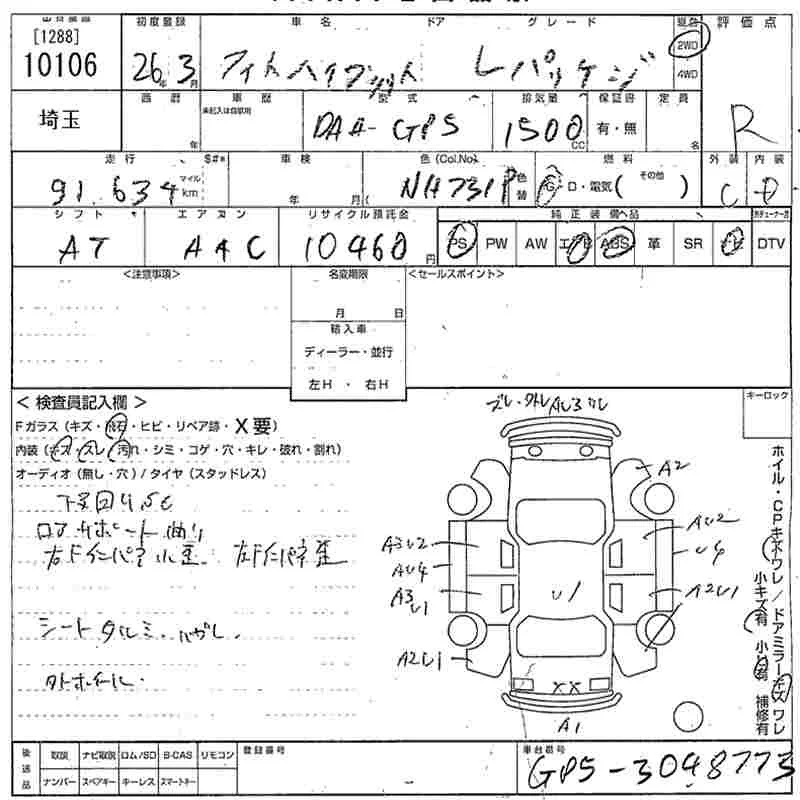 初度登録 車名 ドア グレード 評価点
[1288]
10106
26年3月 フィットハイブリット Lパッケージ 2WD
4WD
R
西暦 車歴 型式 排気量 保証書 定員
未記入は自家用
埼玉 年 DAA-GP5 1500CC 有・無 名
走行 車検 色(Col.No) 燃料 外装 内装
その他
91.634 マイル km 年 月( NH731P 色替 G・D・電気( ) C D
シフト エアコン リサイクル預託金 純正装備品
AT AAC 10460円 PS PW AW エアB ABS 革 SR ナビ DTV
<注意事項> 名変期限 <セールスポイント>
月 日
輸入車
ディーラー・並行
左H・右H
<検査員記入欄> キーロック
Fガラス(キズ・飛石・ヒビ・リペア跡・X要)
内装(キズ・スレ・汚れ・シミ・コゲ・穴・キレ・破れ・割れ)
オーディオ(無し・穴)/タイヤ(スタッドレス)
下廻りSC
ロアサポート曲り
右Fインパネ小歪 左Fインパネ歪
シートタルミ・ハガレ.
タトホイール.
ズレ・ワレ AU3ワレ
A2
A3U2
AU2
AU4
U4
A3U1
U1
A2U1
A2U1
XX
A1
ホイル・CPキズワレ/ドアミラーキズワレ
小キズ有 小凹有 補修有
後送品 取説 ナビ取説 ロム/SD B-CAS リモコン 登録番号 車台番号
ナンバー スペアキー キーレス スマートキー - GP5-3048773